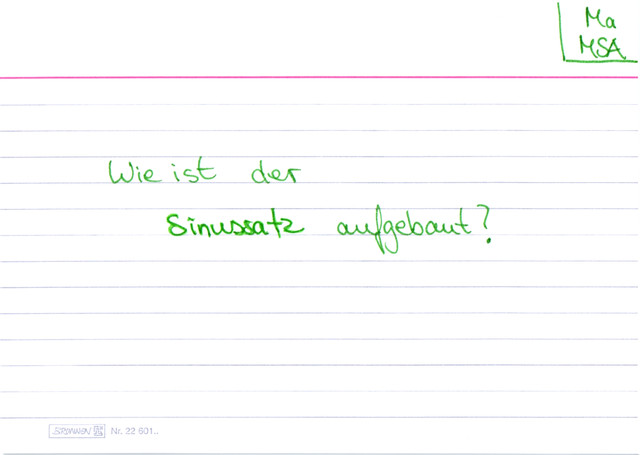 Ma
MSA
Wie ist der
Sinussatz aufgebaut?
BRUNNEN Nr. 22 601..